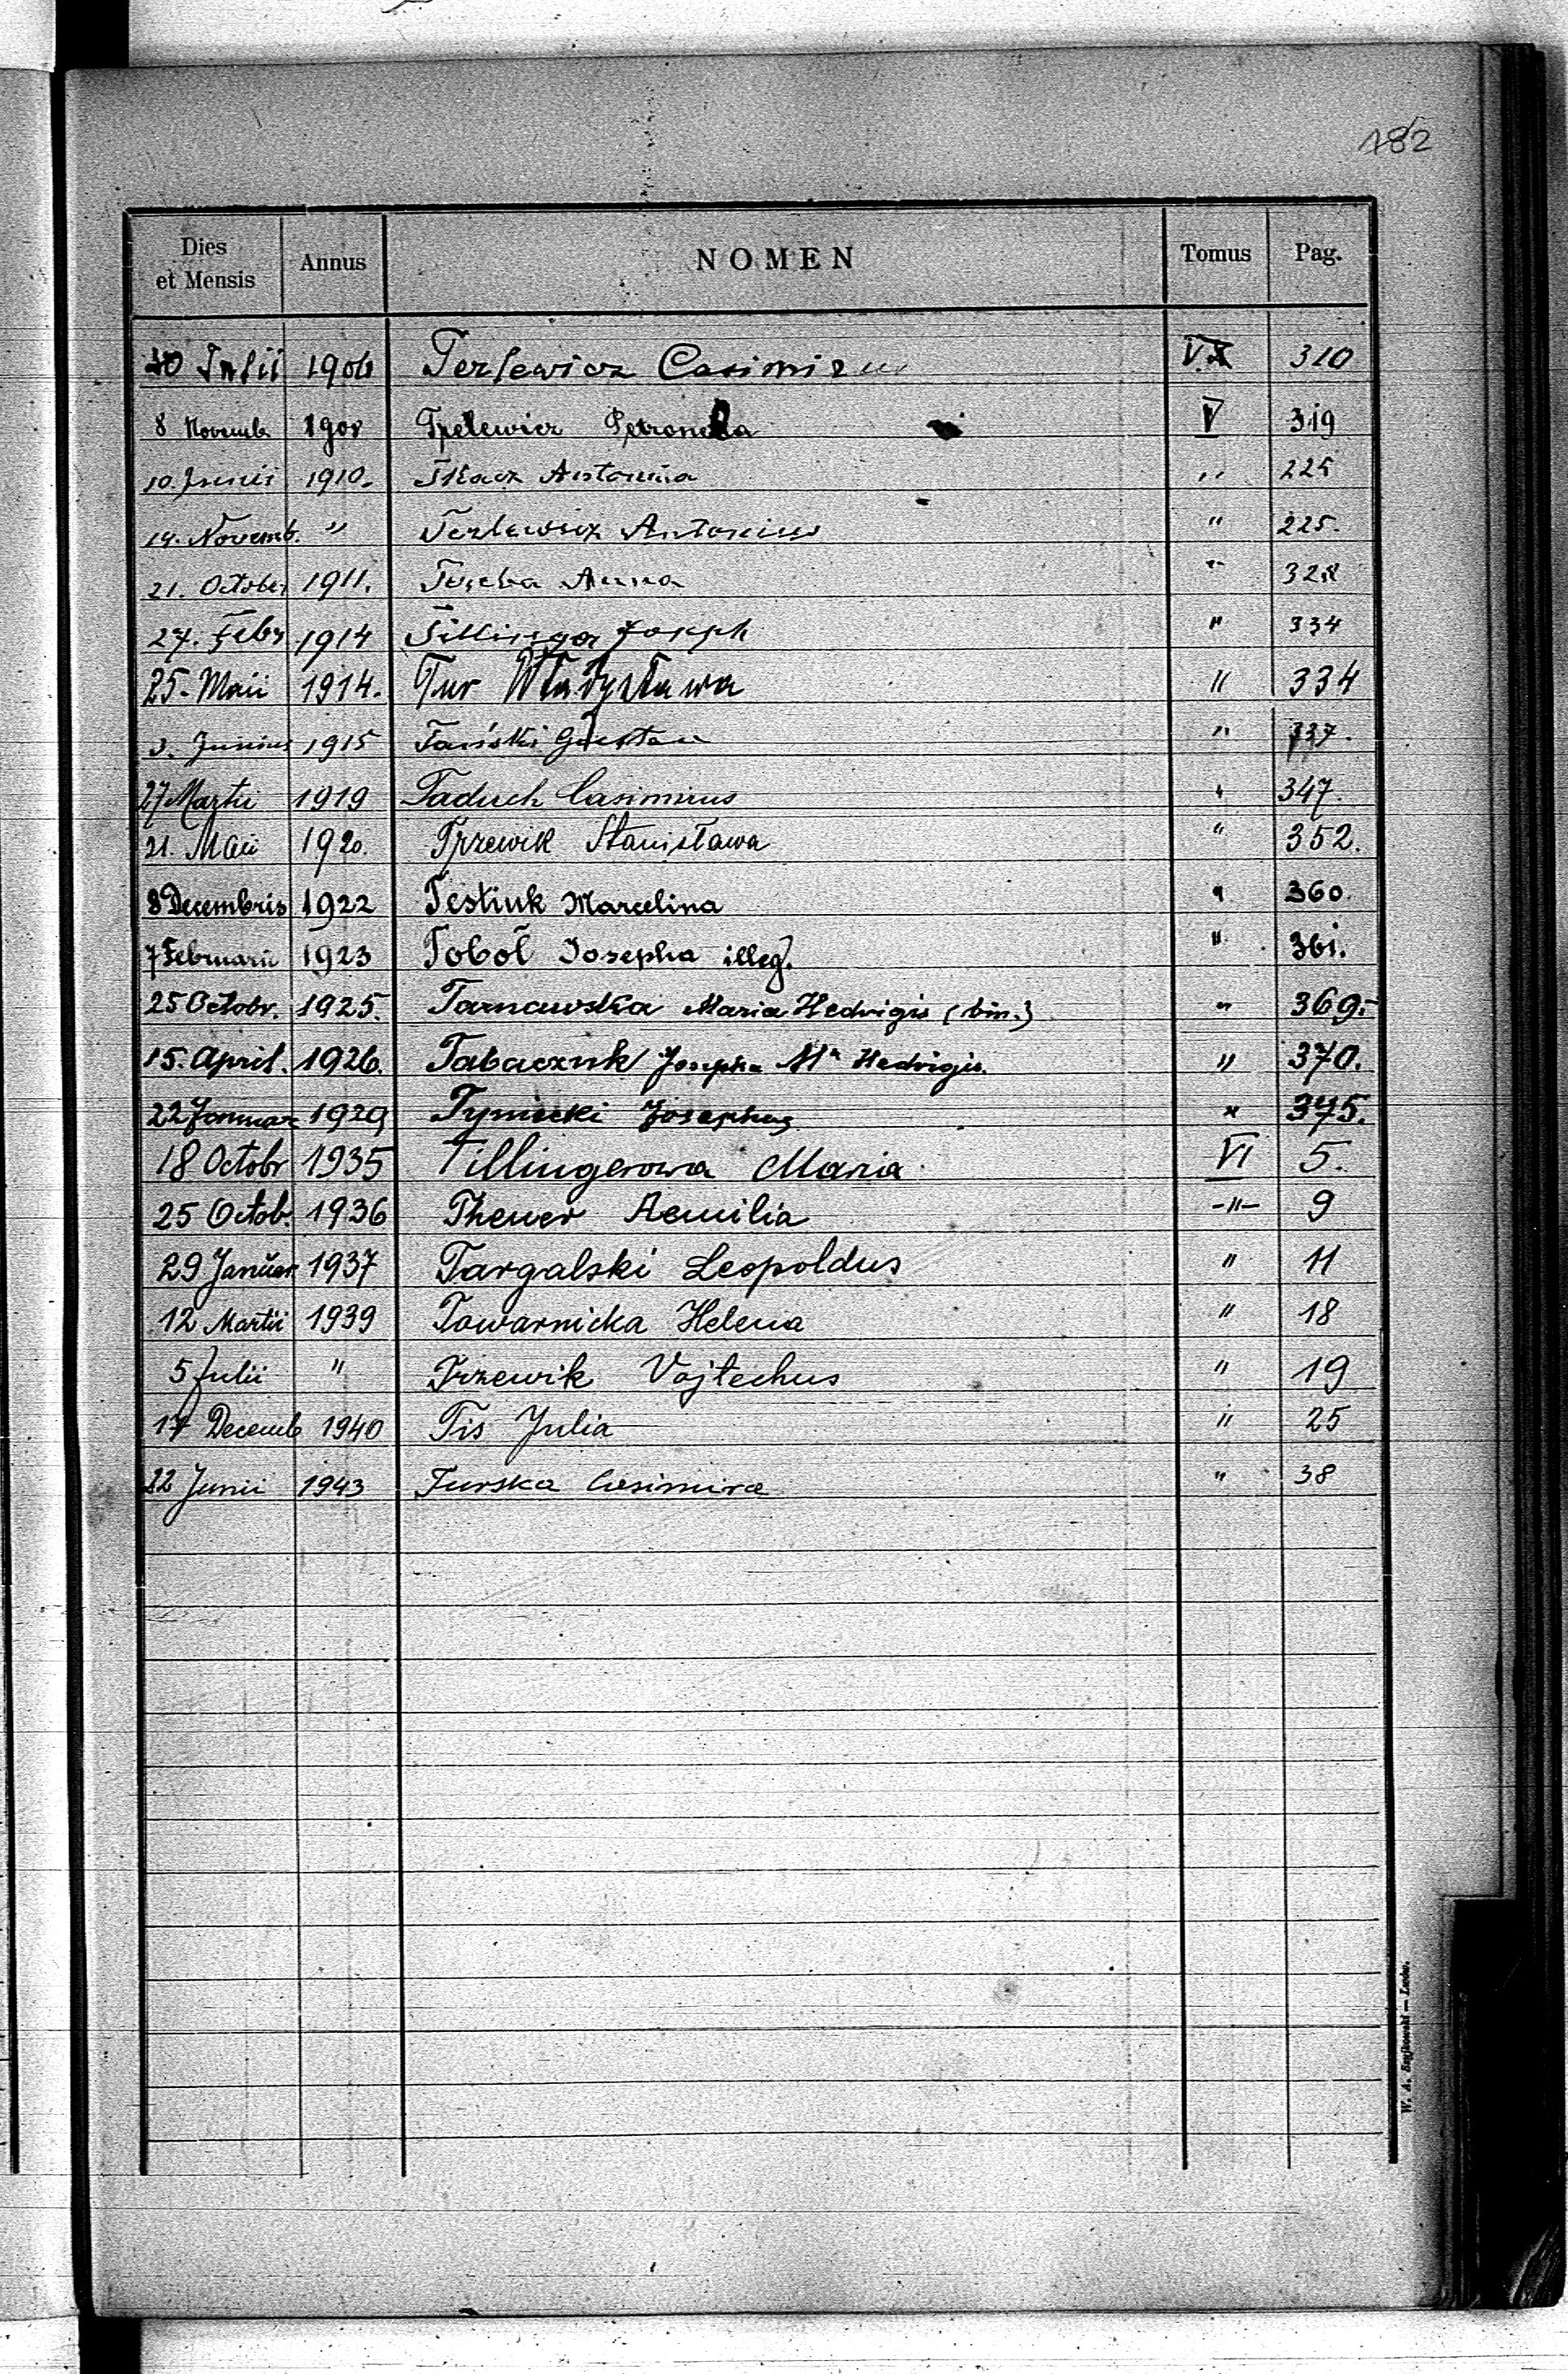 182
Dies et Mensis Annus NOMEN Tomus Pag.
Julii 1906 Terlewicz Casimirus V. 310
8 Novemb. 1908 Petronella V 319
10. Junii 1910. Tkacz Antonina " 225
14. Novemb. " Terlewicz Antonius " 225.
21. October 1911. Anna " 328
27. Febr 1914 Tillinger Joseph " 334
25. Maii 1914. Tur Władysława " 334
3. Junius 1915 Tański Gustau " 337.
27 Martii 1919 Taduch Casimirus " 347.
21. Maii 1920. Trzewik Stanisława " 352.
8 Decembris 1922 Testiuk Marcelina " 360.
7 Februarii 1923 Toboł Josepha illeg. " 361.
25 Octobr. 1925. Tarnawska Maria Hedvigis (bin.) " 369.-
15. April. 1926. Tabaczuk Josepha Ma Hedvigis. " 370.
22 Januar 1929 Tyniecki Josephus " 375.
18 Octobr 1935 Tillingerowa Maria VI 5.
25 Octob. 1936 Thewer Aemilia -"- 9
29 Januar 1937 Targalski Leopoldus " 11
12 Martii 1939 Towarnicka Helena " 18
5 Julii " Trzewik Vojtechus " 19
17 Decemb 1940 Tis Julia " 25
22 Junii 1943 Turska Casimira " 38